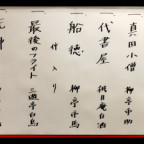 真田小僧 柳亭市助
代書屋 桃月庵白酒
船徳 柳亭市馬
仲入り
最後のフライト 三遊亭白鳥